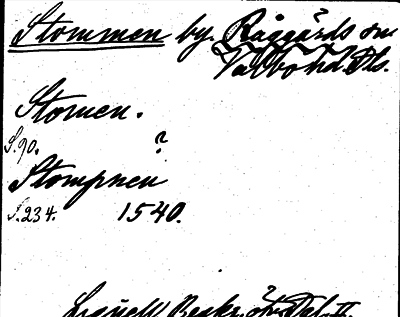 Stommen by. Råggärds sn.
Valbo hd. Dls.
Stomen.
S. 90. ?
Stompnen
S. 234. 1540.
Lignell Beskr. öfv. Dal. II.